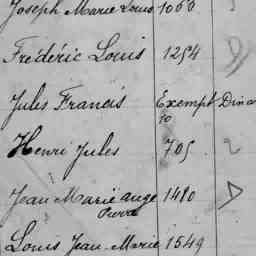 Joseph Marie Louis 1066
Frédéric Louis 1254
Jules Francis Exempt Dina
Henri Jules 705 2
Jean Marie ange 1480
Pierre
Louis Jean Marie 1549